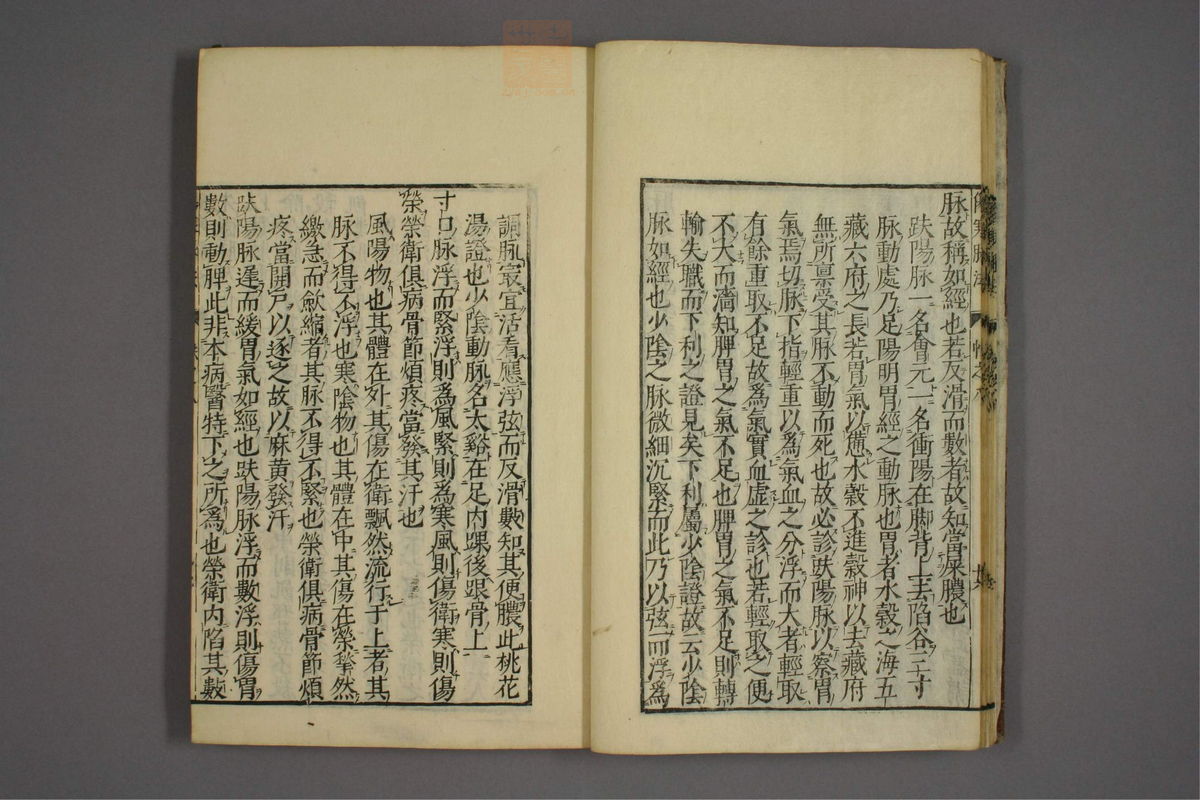 脉故稱如經也若反滑而數者故知當屎膿也
趺陽脉一名會元一名衝陽在脚背上去陷谷三寸
脉動處乃足陽明胃經之動脉也胃者水穀之海五
藏六府之長若胃氣以憊水穀不進穀神以去藏府
無所禀受其脉不動而死也故必診趺陽脉以察胃
氣焉切脉下指輕重以爲氣血之分浮而大者輕取
有餘重取不足故爲氣實血虚之診也若輕取之便
不大而濇知脾胃之氣不足也脾胃之氣不足則轉
輸失職而下利之證見矣下利屬少陰證故云少陰
脉如經也少陰之脉微細沉緊而此乃以弦而浮爲
調脉㝡宜活看應浮弦而反滑數知其便膿此桃花
湯證也少陰動脉名太谿在足内踝後跟骨上
寸口脉浮而緊浮則爲風緊則爲寒風則傷衛寒則傷
榮榮衛俱病骨節煩疼當發其汗也
風陽物也其體在外其傷在衛飄然流行于上者其
脉不得不浮也寒陰物也其體在中其傷在榮拳然
繳急而歛縮者其脉不得不緊也榮衛俱病骨節煩
疼當開戸以逐之故以麻黄發汗
趺陽脉遲而緩胃氣如經也趺陽脉浮而數浮則傷胃
數則動脾此非本病醫特下之所爲也榮衛内陷其數